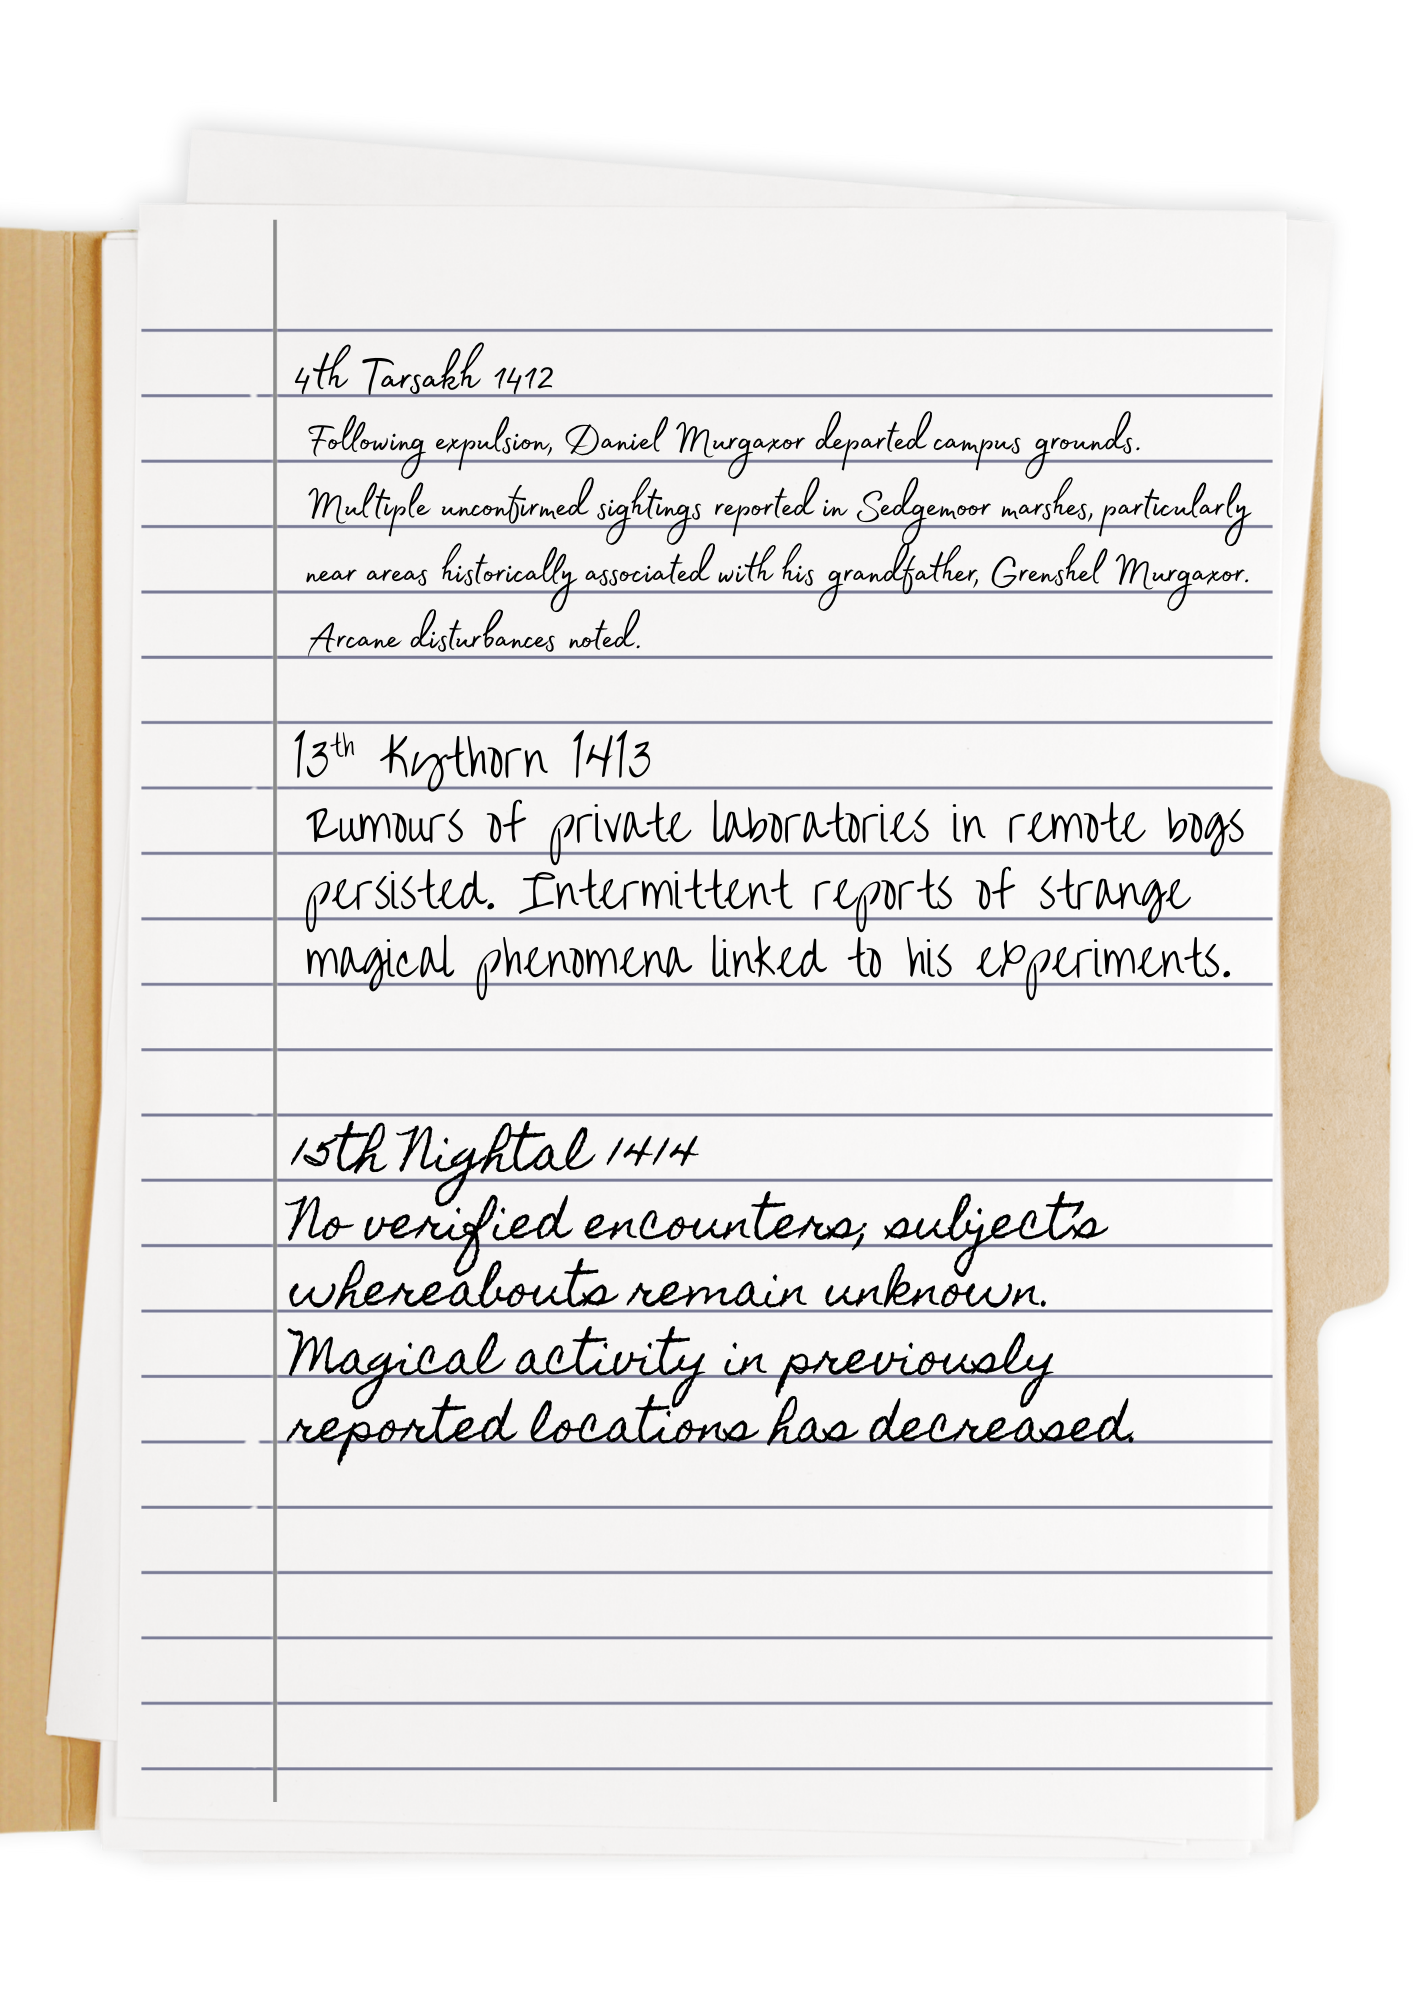 4th Tarsakh 1412
Following expulsion, Daniel Murgaxor departed campus grounds.
Multiple unconfirmed sightings reported in Sedgemoor marshes, particularly
near areas historically associated with his grandfather, Grenshel Murgaxor.
Arcane disturbances noted.
13th Kythorn 1413
Rumours of private laboratories in remote bogs
persisted. Intermittent reports of strange
magical phenomena linked to his experiments.
15th Nightal 1414
No verified encounters; subject's
whereabouts remain unknown.
Magical activity in previously
reported locations has decreased.